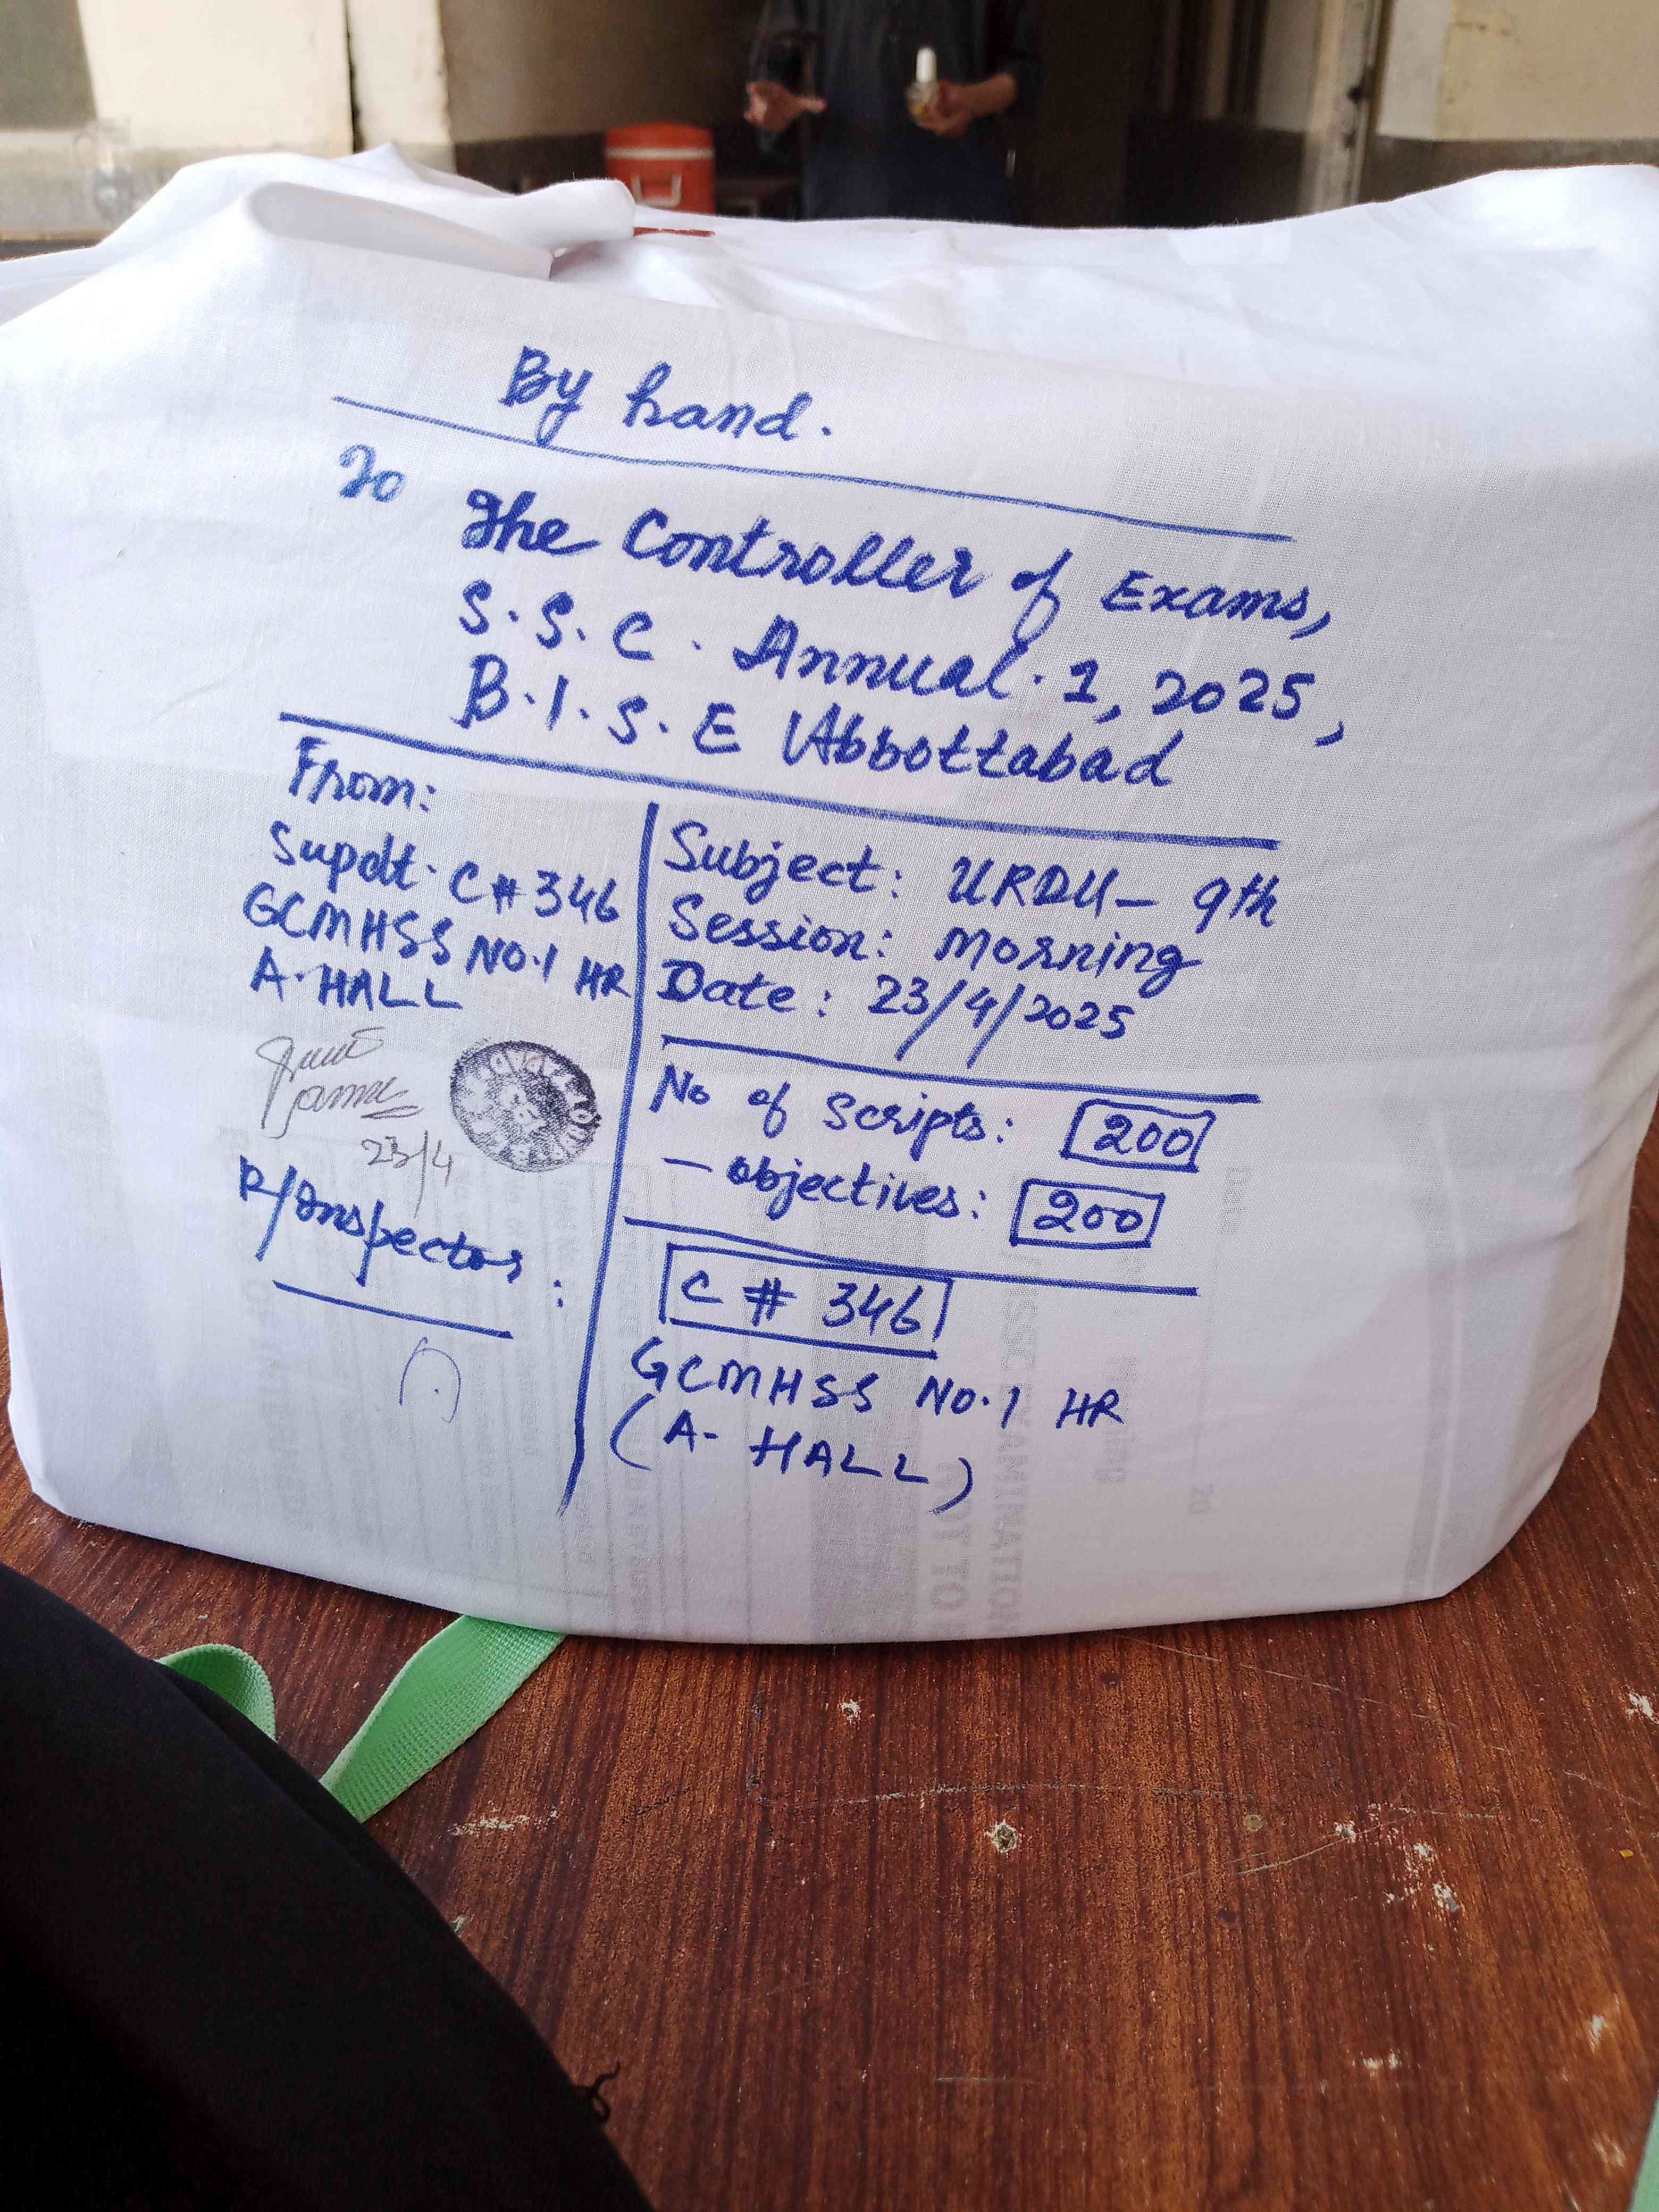 By hand.
To
The Controller of Exams,
S.S.C. Annual.1, 2025,
B.I.S.E Abbottabad
From:
Supdt. C # 346
GCMHSS NO.1 HR
A-HALL
23/4
R/Inspector :
Subject: URDU - 9th
Session: Morning
Date: 23/4/2025
No of Scripts: 200
- objectives: 200
C # 346
GCMHSS No.1 HR
(A- HALL)